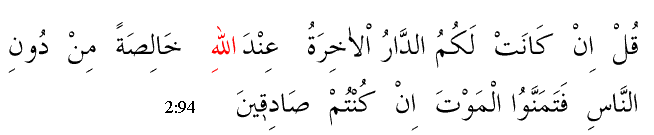 قُلْ اِنْ كَانَتْ لَكُمُ الدَّارُ اْلاٰخِرَةُ عِنْدَ اللهِ خَالِصَةً مِنْ دُونِ
النَّاسِ فَتَمَنَّوُا الْمَوْتَ اِنْ كُنْتُمْ صَادِقِينَ 2:94